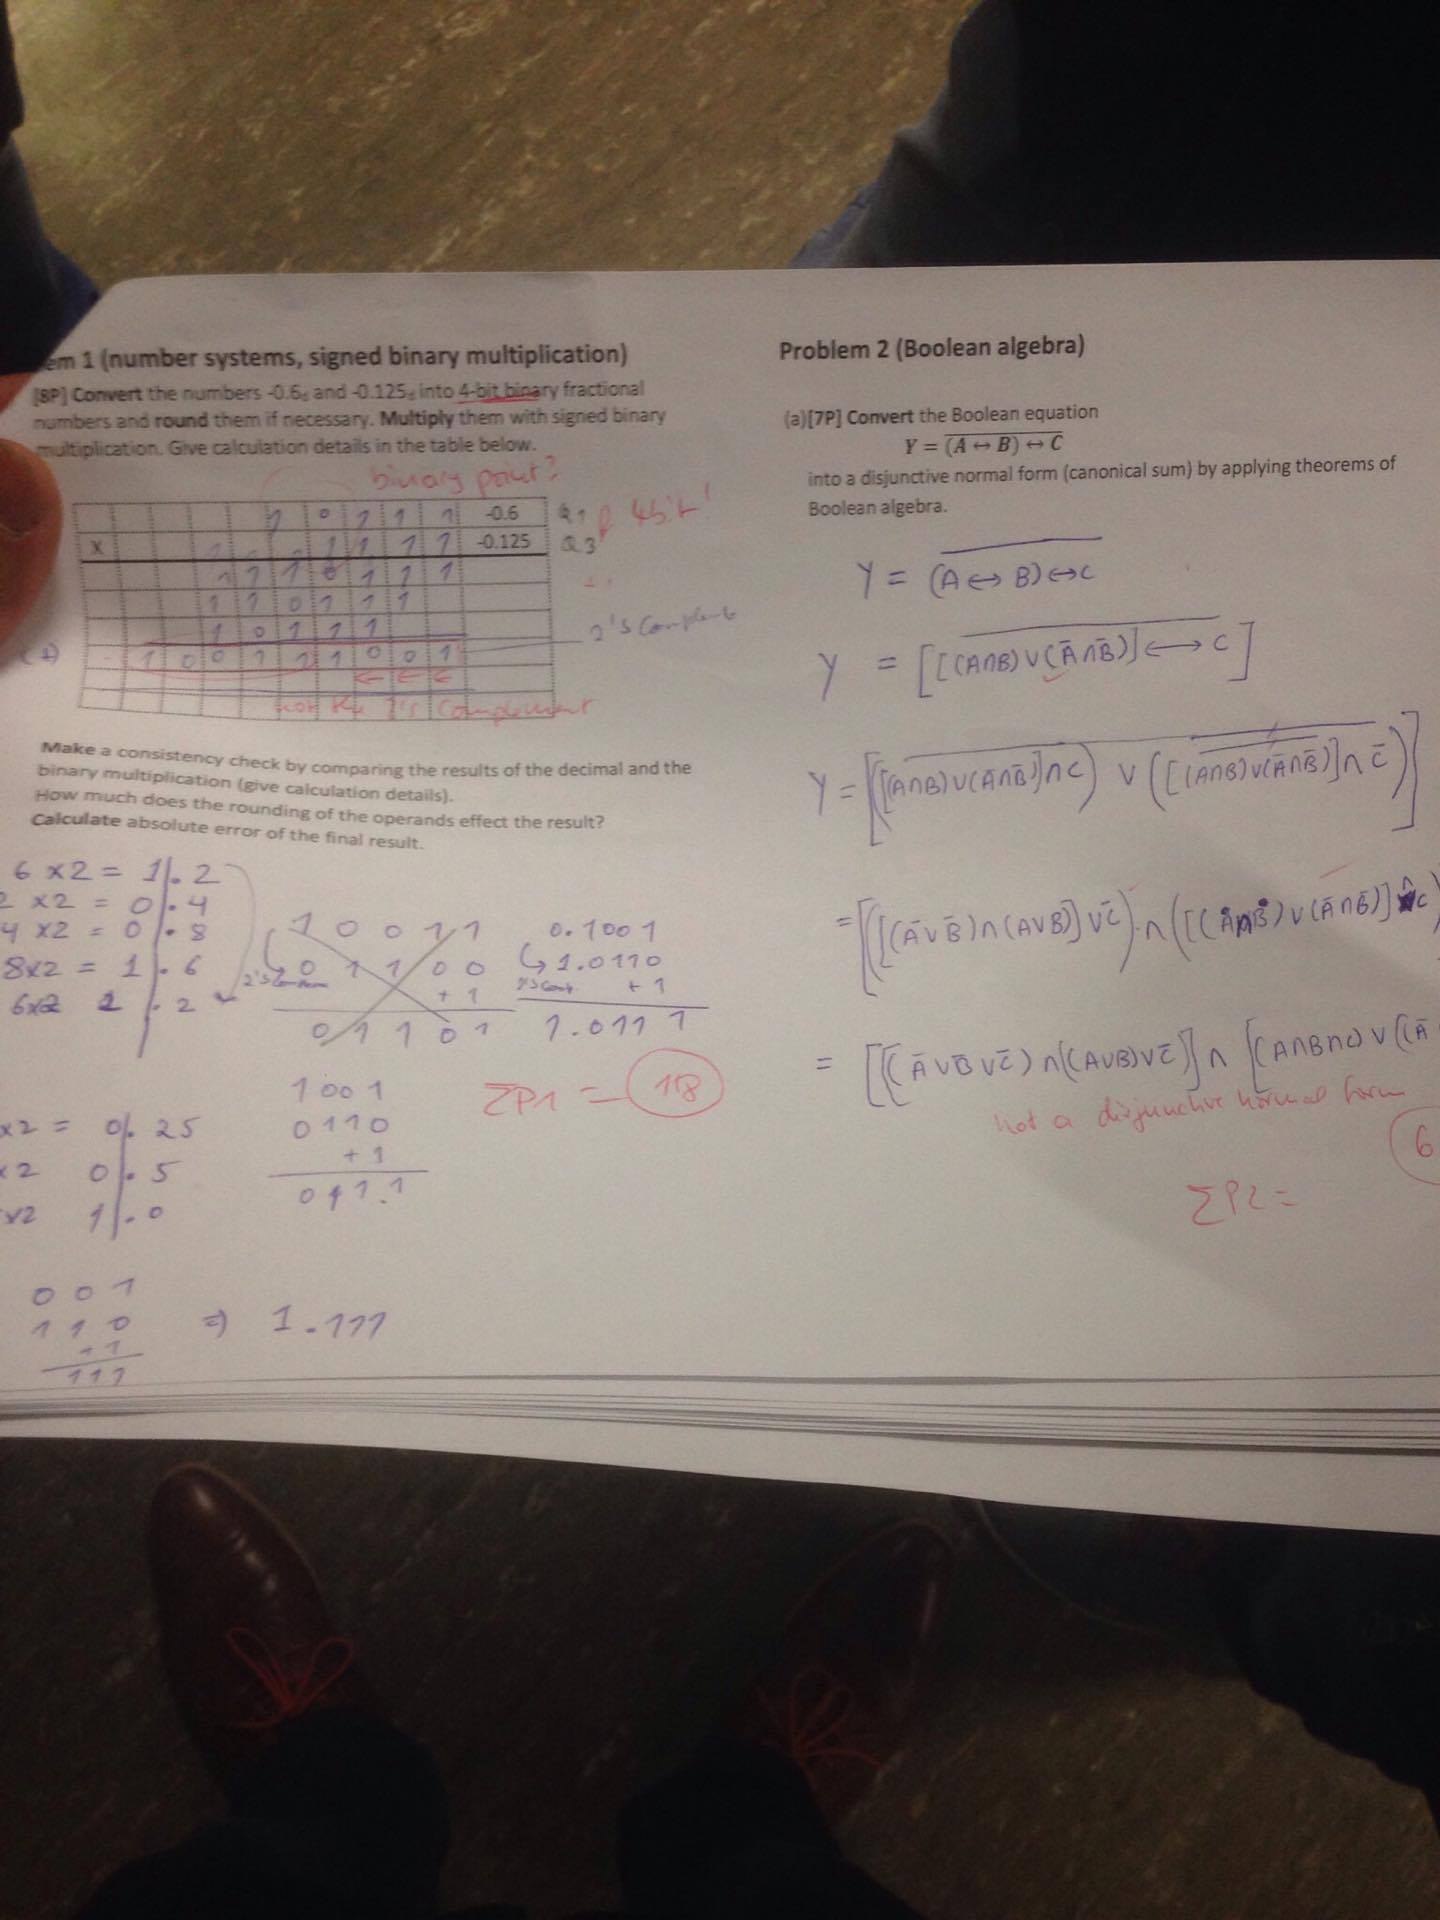 em 1 (number systems, signed binary multiplication)
[8P] Convert the numbers -0.6d and -0.125d into 4-bit binary fractional
numbers and round them if necessary. Multiply them with signed binary
multiplication. Give calculation details in the table below.
binary point?
1 0 1 1 1 -0.6 Q1
4bit!
x 1 1 1 1 -0.125 Q3
1 1 1 0 1 1 1
1 1 0 1 1 1
1 0 1 1 1
2's Complement
1 0 0 1 1 1 0 0 1
not the 2's complement
Make a consistency check by comparing the results of the decimal and the
binary multiplication (give calculation details).
How much does the rounding of the operands effect the result?
Calculate absolute error of the final result.
6 x2 = 1.2
2 x2 = 0.4
4 x2 = 0.8
8x2 = 1.6
6x2 1.2
1 0 0 1 1
0 1 1 0 0
+ 1
0 1 1 0 1
0.1001
1.0110
+ 1
1.0111
ΣP1 = 1/8
1001
0110
+ 1
011.1
x2 = 0.25
x2 0.5
x2 1.0
0 0 1
1 1 0 => 1.111
+1
111
Problem 2 (Boolean algebra)
(a)[7P] Convert the Boolean equation
Y = (A ↔ B) ↔ C
into a disjunctive normal form (canonical sum) by applying theorems of
Boolean algebra.
Y = (A ↔ B) ↔ C
Y = [[(A∩B) ∨ (Ā∩B̄)] ↔ C]
Y = [([(A∩B)∨(Ā∩B̄)]∩C) ∨ ([(A∩B)∨(Ā∩B̄)]∩C̄)]
= [([(Ā∨B̄)∩(A∨B)]∨C̄)∩([(A∩B)∨(Ā∩B̄)] C)
= [[(Ā∨B̄∨C̄)∩((A∨B)∨C̄)]∩[(A∩B∩C)∨((Ā
not a disjunctive normal form
6
ΣP2 =